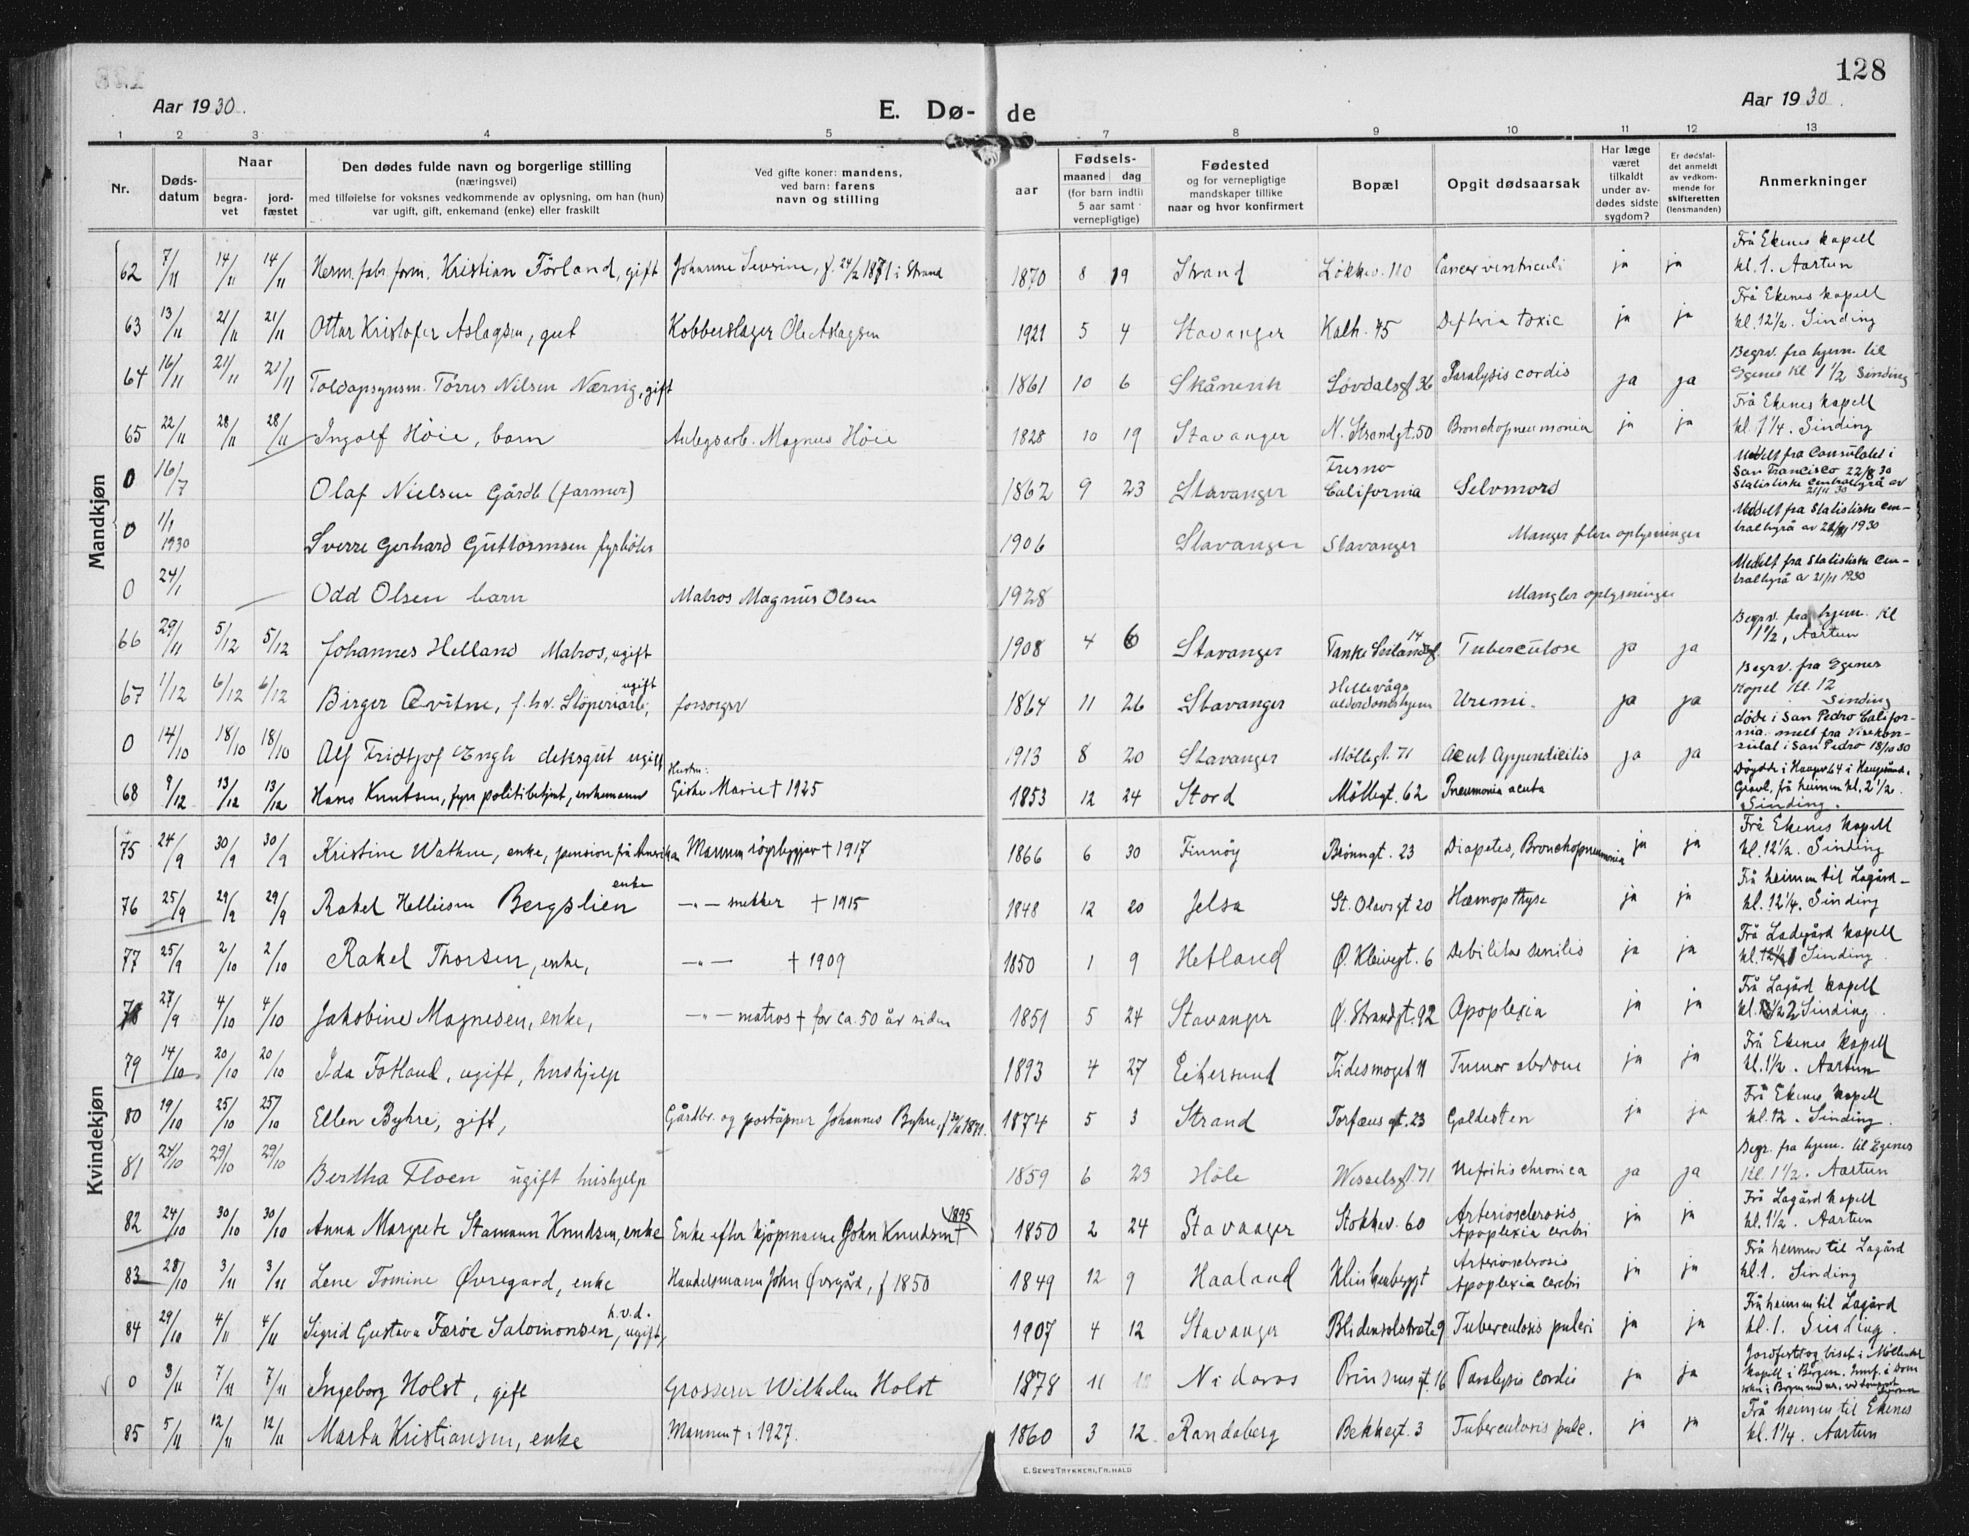 128
Aar 1930.
E. Dø- de
Aar 1930.
1 2 3 4 5 7 8 9 10 11 12 13
Nr.
Døds-
datum
Naar
begra-
vet
jord-
fæstet
Den dødes fulde navn og borgerlige stilling
(næringsvei)
med tilføielse for voksnes vedkommende av oplysning, om han (hun)
var ugift, gift, enkemand (enke) eller fraskilt
Ved gifte koner: mandens,
ved barn: farens
navn og stilling
aar
Fødsels-
maaned dag
(for barn indtil
5 aar samt
vernepligtige)
Fødested
og for vernepligtige
mandskaper tillike
naar og hvor konfirmert
Bopæl
Opgit dødsaarsak
Har læge
været
tilkaldt
under av-
dødes sidste
sygdom?
Er dødsfal-
det anmeldt
av vedkom-
mende for
skifteretten
(lensmanden)
Anmerkninger
Mandkjøn
62 7/11 14/11 14/11 Herm. fabr. form. Kristian Törland, gift Johanne Severine, f. 24/2 1871 i Strand 1870 8 19 Strand Løkkev. 110 Cancer ventriculi ja ja Frå Ekenes kapell kl. 1. Aartun
63 13/11 21/11 21/11 Ottar Kristofer Aslagsen, gut Kobberslager Ole Aslagsen 1921 5 4 Stavanger Kalh. 45 Difteria toxic ja ja Frå Ekenes kapell kl. 12½. Sinding
64 16/11 21/11 21/11 Toldopsynsm. Tørres Nilsen Nærvig, gift 1861 10 6 Skånevik Løvdalsgt 36 Paralysis cordis ja ja Begrv. fra hjem. til Egenes Kl 1½ Sinding
65 22/11 28/11 28/11 Ingolf Höie, barn Anlegsarb. Magnus Höie 1828 10 19 Stavanger N. Strandgt. 50 Bronchopneumonia ja ja Frå Ekenes kapell kl. 1¼. Sinding
0 16/7 Olaf Nielsen Gårdb (farmer) 1862 9 23 Stavanger Fresno California Selvmord Medelt fra Consulatet i San Francisco 22/8 30 Statistiske Centralbyrå av 21/11 30
0 1/1 1930 Sverre Gerhard Guttormsen fyrbøter 1906 Stavanger Stavanger Manger flere oplysninger Medelt fra Statistiske Cen-tralbyrå av 21/11 1930
0 24/1 Odd Olsen barn Matros Magnus Olsen 1928 Mangler oplysninger Medelt fra Statistiske Cen-tralbyrå av 21/11 1930
66 29/11 5/12 5/12 Johannes Helland Matros, ugift 1908 4 6 Stavanger Tanke Svilandsgt. 14 Tuberculose ja ja Begrv. fra hjem. kl 1½, Aartun
67 1/12 6/12 6/12 Birger Qvitne, f.hv. Støperiarb, ugift forsorger 1864 11 26 Stavanger Hillevåg alderdomshjem Uremi. ja ja Begrv. fra Egenes Kapel kl. 12 Sinding
0 14/10 18/10 18/10 Alf Fridtjof Engh deksgut ugift 1913 8 20 Stavanger Møllegt. 71 Acut Appendicitis ja ja døde i San Pedro Califor-nia. melt fra Visekon-sulat i San Pedro 18/10 30
68 9/12 13/12 13/12 Hans Knutsen, fyrr politibetjent, enkemann Hustru: Giske Marie † 1925 1853 12 24 Stord Møllegt. 62 Pneumonia acuta Døydde i Haugev 64 i Haugesund. Gravl. frå heimen kl. 2½. Sinding.
Kvindekjøn
75 24/9 30/9 30/9 Kristine Wathne, enke, pension frå Amerika Mannen røyrleggjar † 1917 1866 6 30 Finnøy Brønngt. 23 Diapetes, Bronchopneumonia ja ja Frå Ekenes kapell kl. 12½. Sinding
76 25/9 29/9 29/9 Rakel Helliesen Bergslien enke —"— snekker † 1915 1848 12 20 Jelsa St. Olavsgt 20 Hæmopthyse ja ja Frå heimen til Lagård- kl. 12¼. Sinding
77 25/9 2/10 2/10 Rakel Thorsen, enke, —"— † 1909 1850 1 9 Hetland Ø. Kleivegt. 6 Debilitas senilis ja ja Frå Ladegård kapell kl. Sinding.
78 27/9 4/10 4/10 Jakobine Magnesen, enke, —"— matros † for ca. 50 år siden 1851 5 24 Stavanger Ø. Strandgt. 92 Apoplexia ja ja Frå Lagård kapell kl. Sinding.
79 14/10 20/10 20/10 Ida Fotland, ugift, hushjelp 1893 4 27 Eikersund Tidesmoget 11 Tumor abdom ja ja Frå Ekenes kapell kl. 1½. Aartun
80 19/10 25/10 25/10 Ellen Byhre, gift, Gårdbr. og postäpner Johannes Byhre, 1874 5 3 Strand Torfæus gt. 23 Galdesten ja ja Frå Ekenes kapell kl. 12. Sinding.
81 24/10 29/10 29/10 Bertha Floen ugift hushjelp 1859 6 23 Høle Wesselsgt. 71 Nefritis chronica ja ja Begr. fra hjem. til Egenes Kl. 1½. Aartun
82 24/10 30/10 30/10 Anna Margrete Stamann Knudsen, enke Enke efter kjøpmann John Knudsen † 1895 1850 2 24 Stavanger Stokkev. 60 Arteriosclerosis Apoplexia cerebri ja ja Frå Lagård kapell kl. 1½. Aartun
83 28/10 3/11 3/11 Lene Tomine Øvregard, enke Handelsmann John Øvregård, f 1850 1849 12 9 Haaland Klinkenberggt Arteriosclerosis Apoplexia cerebri ja ja Frå heimen til Lagård kl. 1. Sinding
84 29/10 4/11 4/11 Sigrid Gustava Færöe Salomonsen, h.v.d. ugift, 1907 4 12 Stavanger Blidensolstræte 9 Tuberculosis pulm ja ja Frå heimen til Lagård kl. 1. Sinding.
0 3/11 7/11 7/11 Ingeborg Holst, gift Grosserer Wilhelm Holst 1878 11 Nidaros Prinsens gt. 16 Paralysis cordis ja ja Jordfest og biset i Møllendal kapell i Bergen.
85 5/11 12/11 12/11 Marta Kristiansen, enke Mannen † i 1927. 1860 3 12 Randaberg Bekkegt. 3 Tuberculosis pulm. ja ja Frå heimen til Ekenes kl. 1¼. Aartun
E. SEM'S TRYKKERI, FR.HALD